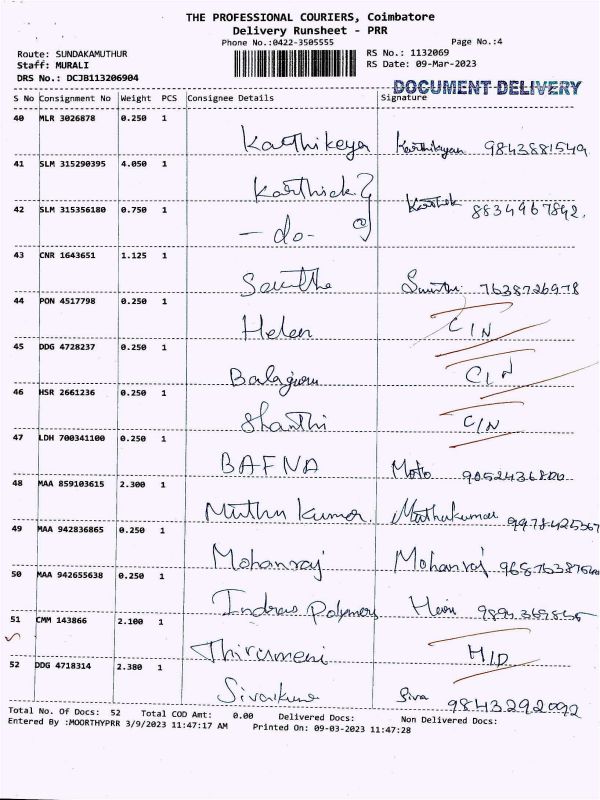 THE PROFESSIONAL COURIERS, Coimbatore
Delivery Runsheet - PRR
Phone No.:0422-3505555 Page No.:4
Route: SUNDAKAMUTHUR RS No.: 1132069
Staff: MURALI RS Date: 09-Mar-2023
DRS No.: DCJB113206904
DOCUMENT DELIVERY
S No Consignment No Weight PCS Consignee Details Signature
40 MLR 3026878 0.250 1
Karthikeya Karthikeyan 9843881549
41 SLM 315290395 4.050 1
Karthick
42 SLM 315356180 0.750 1 Karthik 8834967842.
- do -
43 CNR 1643651 1.125 1
7638726978
44 PON 4517798 0.250 1
Helen CIN
45 DDG 4728237 0.250 1
Balaguru CIN
46 HSR 2661236 0.250 1
Shanthi CIN
47 LDH 700341100 0.250 1
BAFNA
48 MAA 859103615 2.300 1
Muthu kumar. Muthukumar
49 MAA 942836865 0.250 1
Mohanraj Mohanraj
50 MAA 942655638 0.250 1
Polymers
51 CMM 143866 2.100 1
HID
52 DDG 4718314 2.380 1
Siva 9843292092
Total No. Of Docs: 52 Total COD Amt: 0.00 Delivered Docs: Non Delivered Docs:
Entered By :MOORTHYPRR 3/9/2023 11:47:17 AM Printed On: 09-03-2023 11:47:28